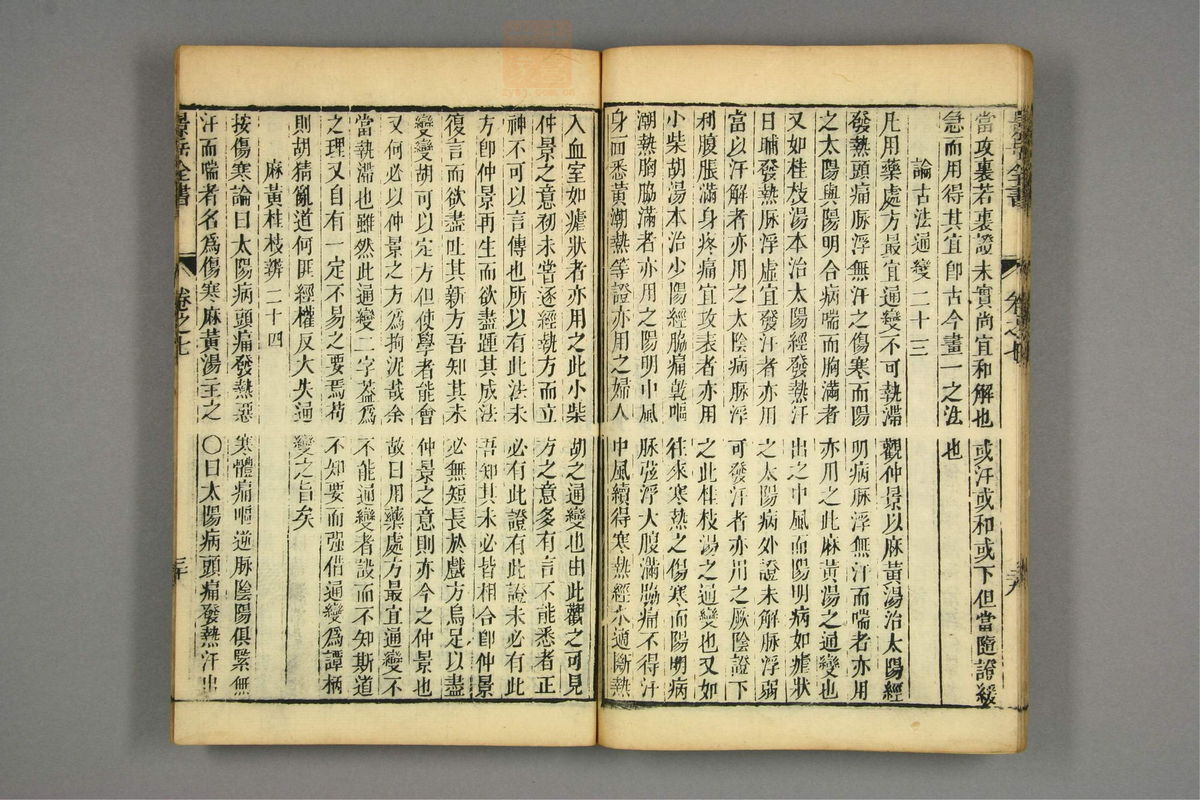 當攻裏若裏證未實尚宜和解也或汗或和或下但當隨證緩
急而用得其宜卽古今畫一之法也
論古法通變二十三
凡用藥處方最宜通變不可執滯觀仲景以麻黃湯治太陽經
發熱頭痛脉浮無汗之傷寒而陽明病脉浮無汗而喘者亦用
之太陽與陽明合病喘而胸滿者亦用之此麻黃湯之通變也
又如桂枝湯本治太陽經發熱汗出之中風而陽明病如瘧狀
日晡發熱脉浮虛宜發汗者亦用之太陽病外證未解脉浮弱
當以汗解者亦用之太陰病脉浮可發汗者亦用之厥陰證下
利腹脹滿身疼痛宜攻表者亦用之此桂枝湯之通變也又如
小柴胡湯本治少陽經脇痛乾嘔往來寒熱之傷寒而陽明病
潮熱胸脇滿者亦用之陽明中風脉弦浮大腹滿脇痛不得汗
身面悉黃潮熱等證亦用之婦人中風續得寒熱經水適斷熱
入血室如瘧狀者亦用之此小柴胡之通變也由此觀之可見
仲景之意初未嘗逐經執方而立方之意多有言不能悉者正
神不可以言傳也所以有此法未必有此證有此證未必有此
方卽仲景再生而欲盡踵其成法吾知其未必皆相合卽仲景
復言而欲盡吐其新方吾知其未必無短長於戲方烏足以盡
變變胡可以定方但使學者能會仲景之意則亦今之仲景也
又何必以仲景之方爲拘泥哉余故曰用藥處方最宜通變不
當執滯也雖然此通變二字葢爲不能通變者設而不知斯道
之理又自有一定不易之要焉苟不知要而强借通變爲譚柄
則胡猜亂道何匪經權反大失通變之旨矣
麻黃桂枝辨二十四
按傷寒論曰太陽病頭痛發熱惡寒體痛嘔逆脉陰陽俱緊無
汗而喘者名爲傷寒麻黃湯主之〇曰太陽病頭痛發熱汗出
景岳全書
卷之七
三十